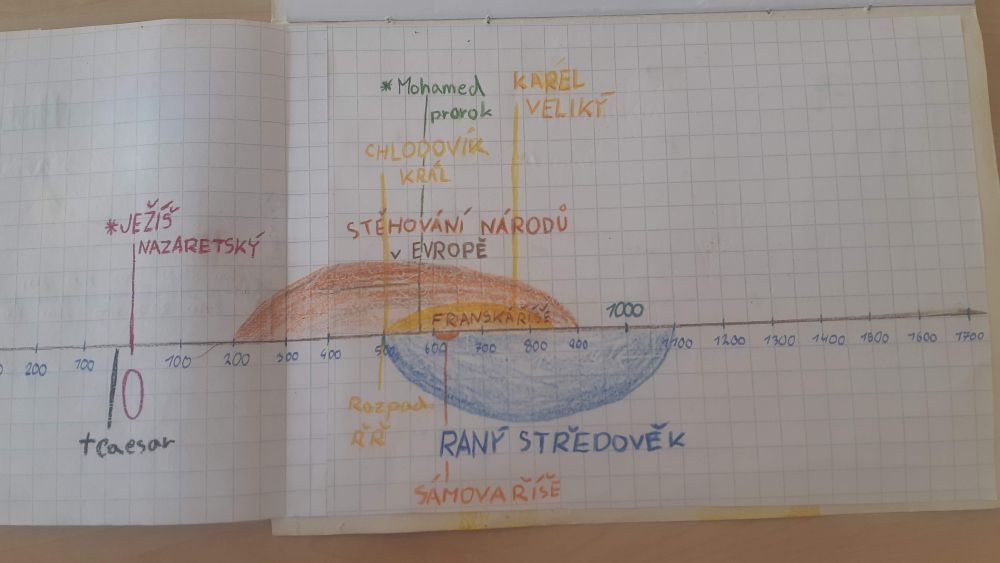 *Mohamed
prorok
KAREL
VELIKÝ
CHLODOVÍK
KRÁL
*JEŽÍŠ
NAZARETSKÝ
STĚHOVÁNÍ NÁRODŮ
v EVROPĚ
FRANSKÁ ŘÍŠE
1000
200 100 0 100 200 300 400 500 600 700 800 900 1100 1200 1300 1400 1500 1600 1700
†Caesar
Rozpad
ŘŘ
RANÝ STŘEDOVĚK
SÁMOVA ŘÍŠE